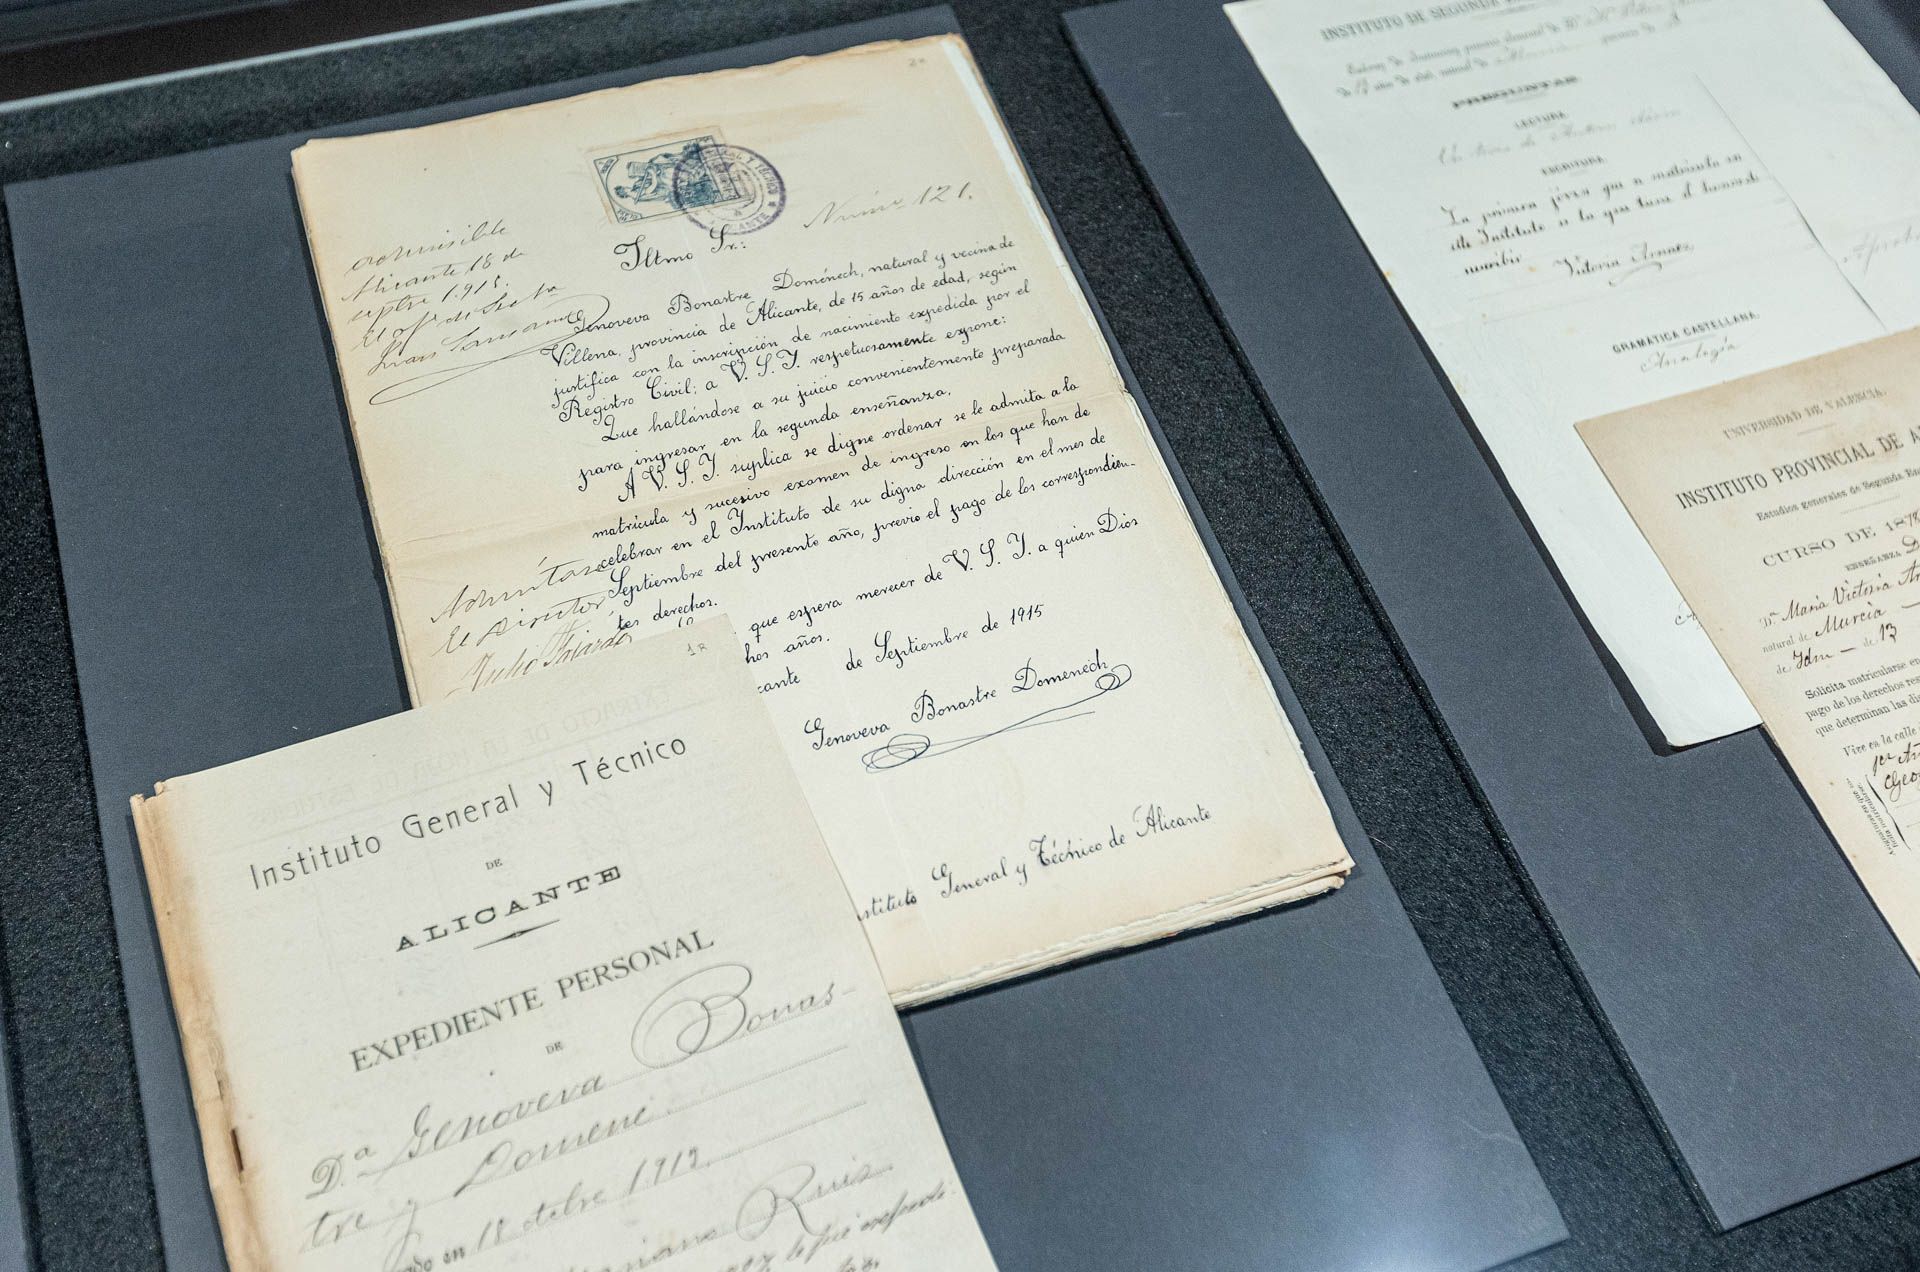 Núm.º 121.
admisible
Alicante 18 de
septre 1.915.
El of.l de Secta
Iltmo Sr.:
Genoveva Bonastre Doménech, natural y vecina de
Villena, provincia de Alicante, de 15 años de edad, según
justifica con la inscripción de nacimiento expedida por el
Registro Civil; a V. S. I. respetuosamente expone:
Que hallándose a su juicio convenientemente preparada
para ingresar en la segunda enseñanza,
A V. S. I. suplica se digne ordenar se le admita a la
matrícula y sucesivo examen de ingreso en los que han de
celebrar en el Instituto de su digna dirección en el mes de
Septiembre del presente año, previo el pago de los correspondien-
tes derechos.
que espera merecer de V. S. I. a quien Dios
hos años.
cante de Septiembre de 1915
Genoveva Bonastre Domenech
stituto General y Técnico de Alicante
El Director,
Julio Fajardo
Instituto General y Técnico
DE
ALICANTE
EXPEDIENTE PERSONAL
DE
D.ª Genoveva Bonas-
tre y Domene
ado en 18 octbre 1919
Ruis
INSTITUTO DE SEGUNDA
PREGUNTAS
LECTURA.
ESCRITURA.
La primera jóven que se matricula en
este Instituto es la que tiene el honor de
suscribir
Vitoria Arnaez
GRAMATICA CASTELLANA.
Analogía
UNIVERSIDAD DE VALENCIA.
INSTITUTO PROVINCIAL DE A
Estudios generales de Segunda En
CURSO DE 1878
ENSEÑANZA
D.ª María Victoria Ar
natural de Murcia
de Idm - de 13
Solicita matricularse en
pago de los derechos res
que determinan las di
Vive en la calle